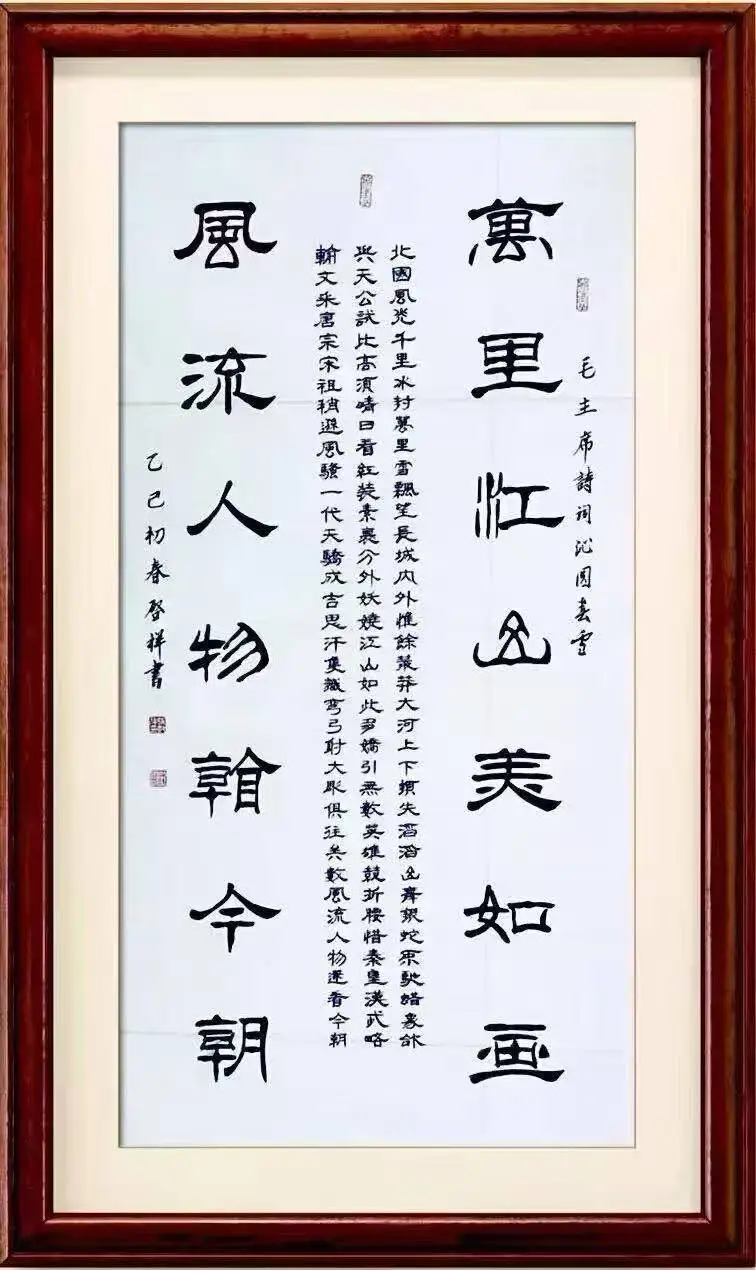 毛主席詩詞沁園春雪
萬里江山美如画
北國風光千里冰封萬里雪飄望長城内外惟餘莽莽大河上下頓失滔滔山舞銀蛇原馳蜡象欲
與天公試比高須晴日看紅裝素裹分外妖嬈江山如此多嬌引無數英雄競折腰惜秦皇漢武略
輸文采唐宗宋祖稍遜風騷一代天驕成吉思汗隻識彎弓射大彫俱往矣數風流人物還看今朝
風流人物翰今朝
乙巳初春啓祥書